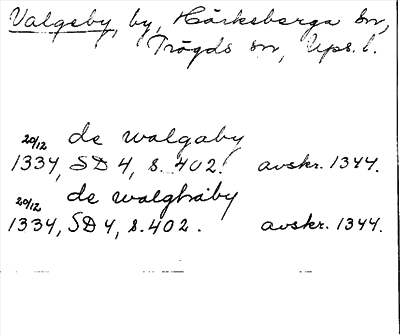 Valgeby, by, Härkeberga sn,
Trögds hd, Ups. l.
20/12 de walgaby
1334, SD 4, s. 402. avskr. 1344.
20/12 de walghaby
1334, SD 4, s. 402. avskr. 1344.